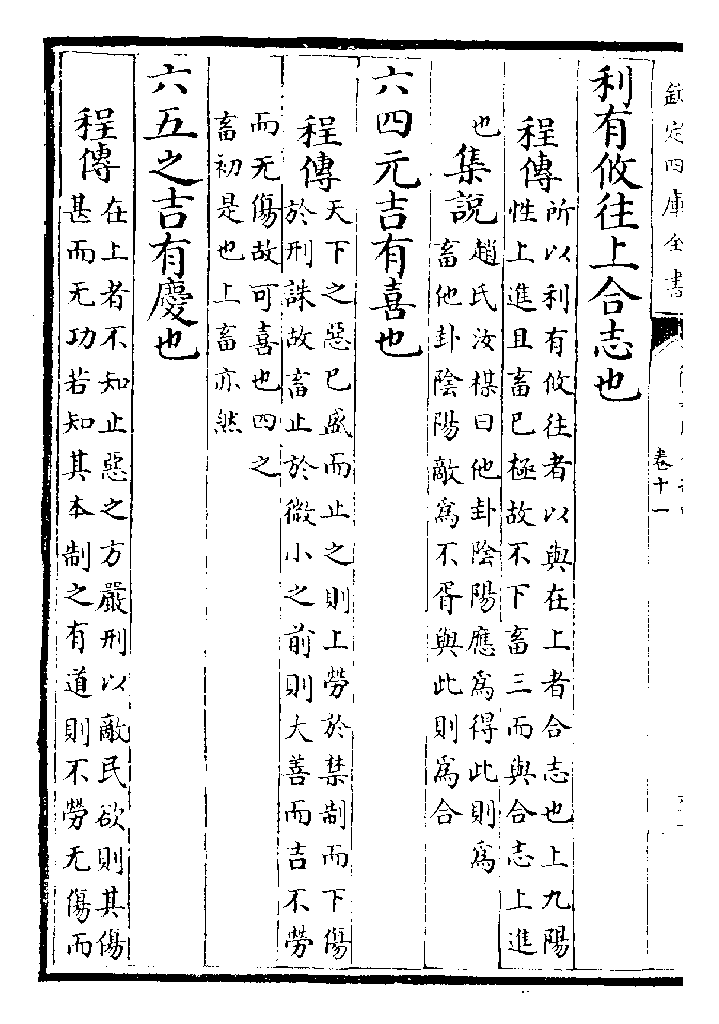 欽定四庫全書
卷十一
利有攸往上合志也
程傳所以利有攸往者以與在上者合志也上九陽
性上進且畜已極故不下畜三而與合志上進
也集說趙氏汝楳曰他卦陰陽應為得此則為
畜他卦陰陽敵為不胥與此則為合
六四元吉有喜也
程傳天下之惡已盛而止之則上勞於禁制而下傷
於刑誅故畜止於微小之前則大善而吉不勞
而无傷故可喜也四之
畜初是也上畜亦然
六五之吉有慶也
程傳在上者不知止惡之方嚴刑以敵民欲則其傷
甚而无功若知其本制之有道則不勞无傷而